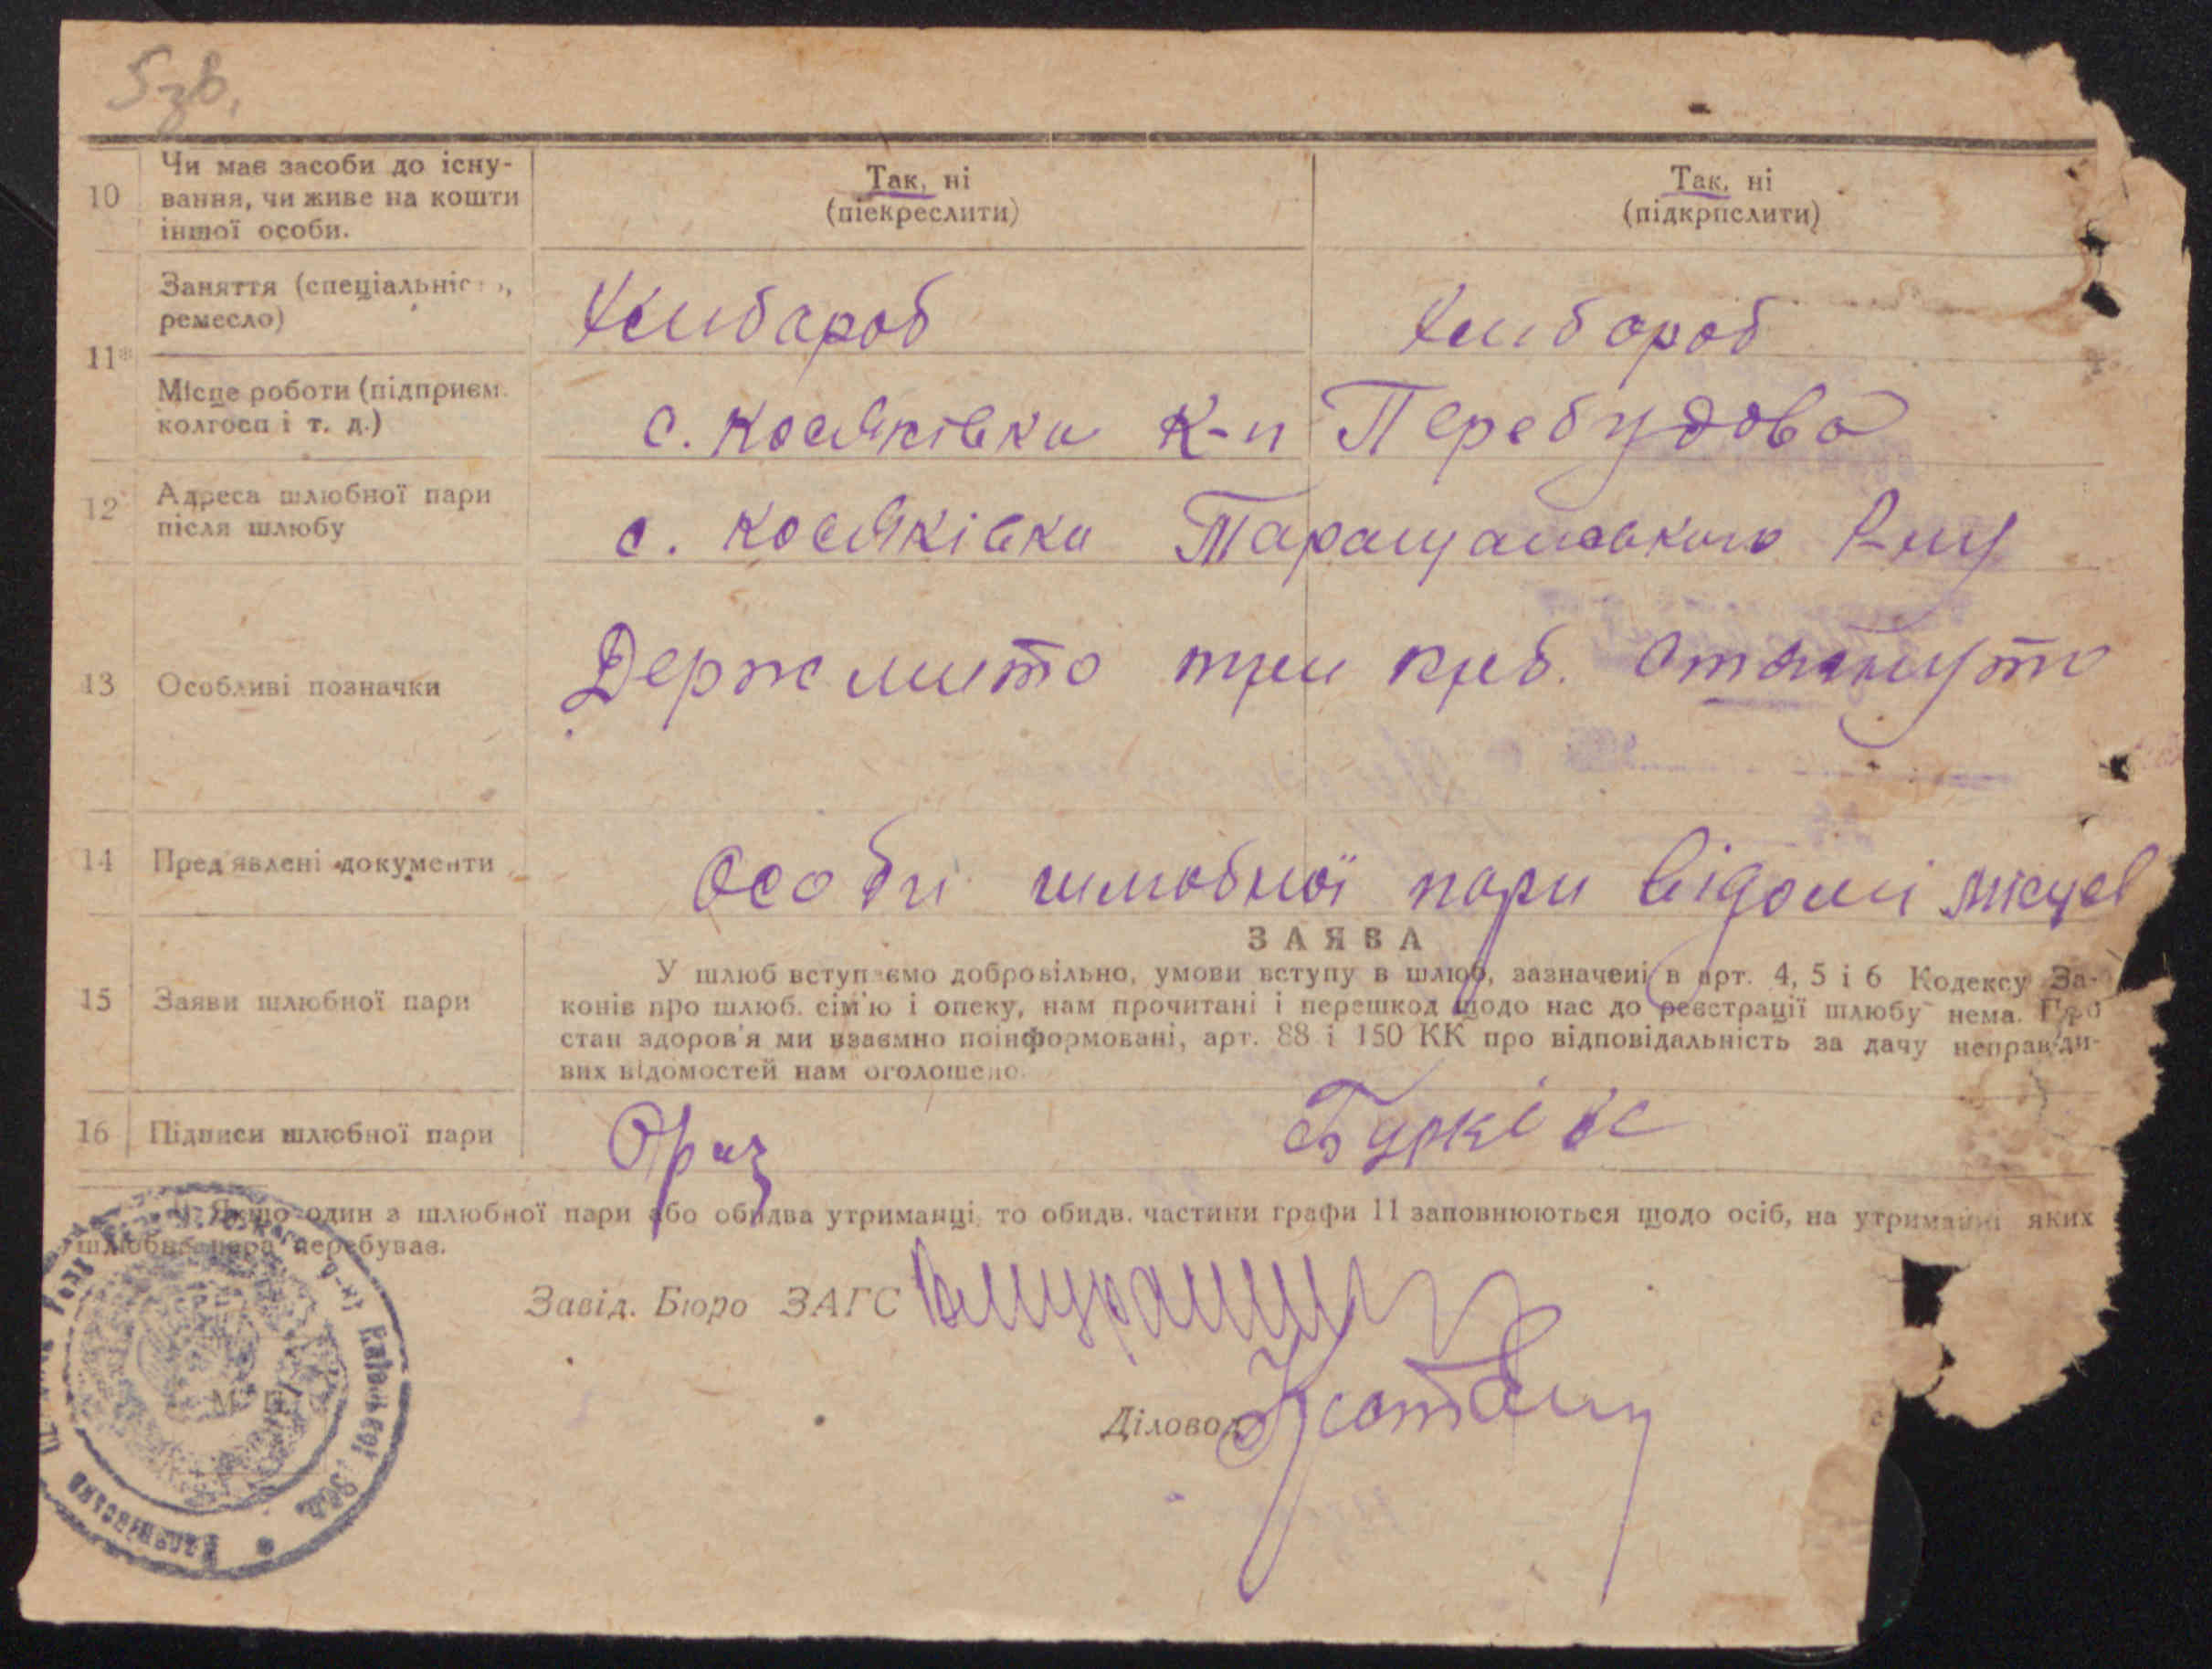 5зв.
10 Чи має засоби до існу- Так, ні Так, ні
вання, чи живе на кошти (піекреслити) (підкрпслити)
іншої особи.
Заняття (спеціальніс , Хлібароб Хлібороб
ремесло)
11*
Місце роботи (підприєм. с. Косяківка К-п Перебудова
колгосп і т. д.)
12 Адреса шлюбної пари с. Косяківка Таращанського Р-ну
після шлюбу
13 Особливі позначки Держмито три крб. стягнуто
14 Пред'явлені документи Особи шлюбної пари відомі місцев
ЗАЯВА
15 Заяви шлюбної пари У шлюб вступаємо добровільно, умови вступу в шлюб, зазначені в арт. 4, 5 і 6 Кодексу За-
конів про шлюб. сім'ю і опеку, нам прочитані і перешкод щодо нас до реєстрації шлюбу нема. Про
стан здоров'я ми взаємно поінформовані, арт. 88 і 150 КК про відповідальність за дачу неправди-
вих відомостей нам оголошено.
16 Підписи шлюбної пари
Якщо один з шлюбної пари або обидва утриманці, то обидв. частини графи 11 заповнюються щодо осіб, на утриманні яких
шлюбна пара перебуває.
Завід. Бюро ЗАГС
Діловод